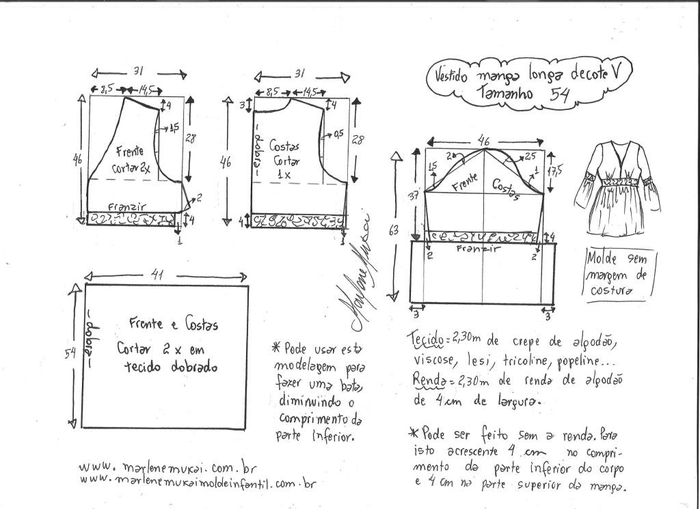 Vestido manga longa decote V
Tamanho 54
31
8,5 14,5
4
1,5
28
46
Frente
cortar 2x
Franzir
2
4
1
31
8,5 14,5
3
4
0,5
28
46
dobra
Costas
Cortar
1x
4
1
46
2
2,5
1,5
1
17,5
Frente
Costas
37
63
4
Franzir
2
2
3
3
Molde sem
margem de
costura
Marlene Mukai
41
54
dobra
Frente e Costas
Cortar 2 x em
tecido dobrado
* Pode usar esta
modelagem para
fazer uma bata,
diminuindo o
comprimento da
parte inferior.
Tecido = 2,30m de crepe de algodão,
viscose, lesi, tricoline, popeline...
Renda = 2,30m de renda de algodão
de 4 cm de largura.
* Pode ser feito sem a renda. Para
isto acrescente 4 cm no compri-
mento da parte inferior do corpo
e 4 cm na parte superior da manga.
www.marlenemukai.com.br
www.marlenemukaimoldeinfantil.com.br